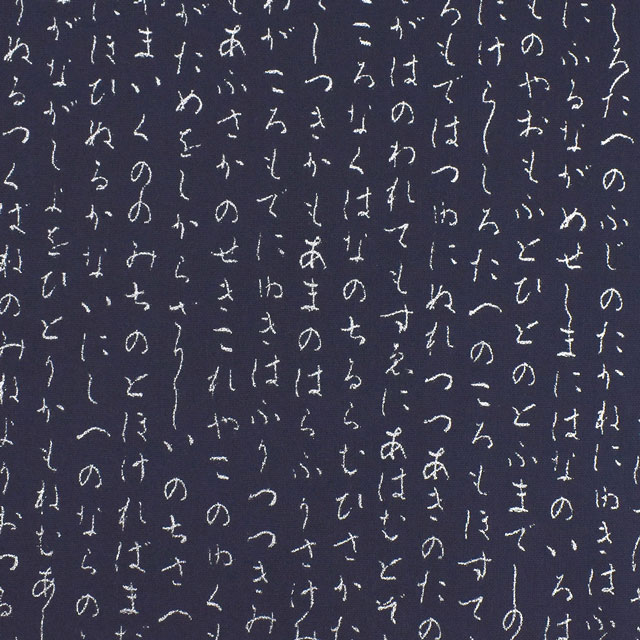 しろたへのふじのたかねにゆきはふ
にふるながめせしまにはなのいろは
ものやおもふとひとのとふまでしの
けらししろたへのころもほすて
ろもてはつゆにぬれつつあきのたの
がはのわれてもすゑにあはむとぞ
ころなくはなのちるらむひさかた
てしつきかもあまのはらふりさけ
がころもでにゆきはふりつつきみ
もあふさかのせきこれやこのゆくも
がためをしからざりしいのちさへ
まいくののみちのとほければまだ
ほひぬるかないにしへのならの
がながしよをひとりかもねむあし
りぬるつくはねのみねよりおつる